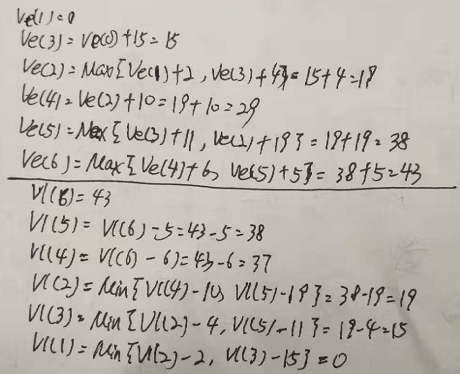 Ve(1)=0
Ve(3)=Ve(1)+15=15
Ve(2)=Max{Ve(1)+2,Ve(3)+4}=15+4=19
Ve(4)=Ve(2)+10=19+10=29
Ve(5)=Max{Ve(3)+11,Ve(2)+19}=19+19=38
Ve(6)=Max{Ve(4)+6,Ve(5)+5}=38+5=43
Vl(6)=43
Vl(5)=Vl(6)-5=43-5=38
Vl(4)=Vl(6)-6)=43-6=37
Vl(2)=Min{Vl(4)-10,Vl(5)-19}=38-19=19
Vl(3)=Min{Vl(2)-4,Vl(5)-11}=19-4=15
Vl(1)=Min{Vl(2)-2,Vl(3)-15}=0